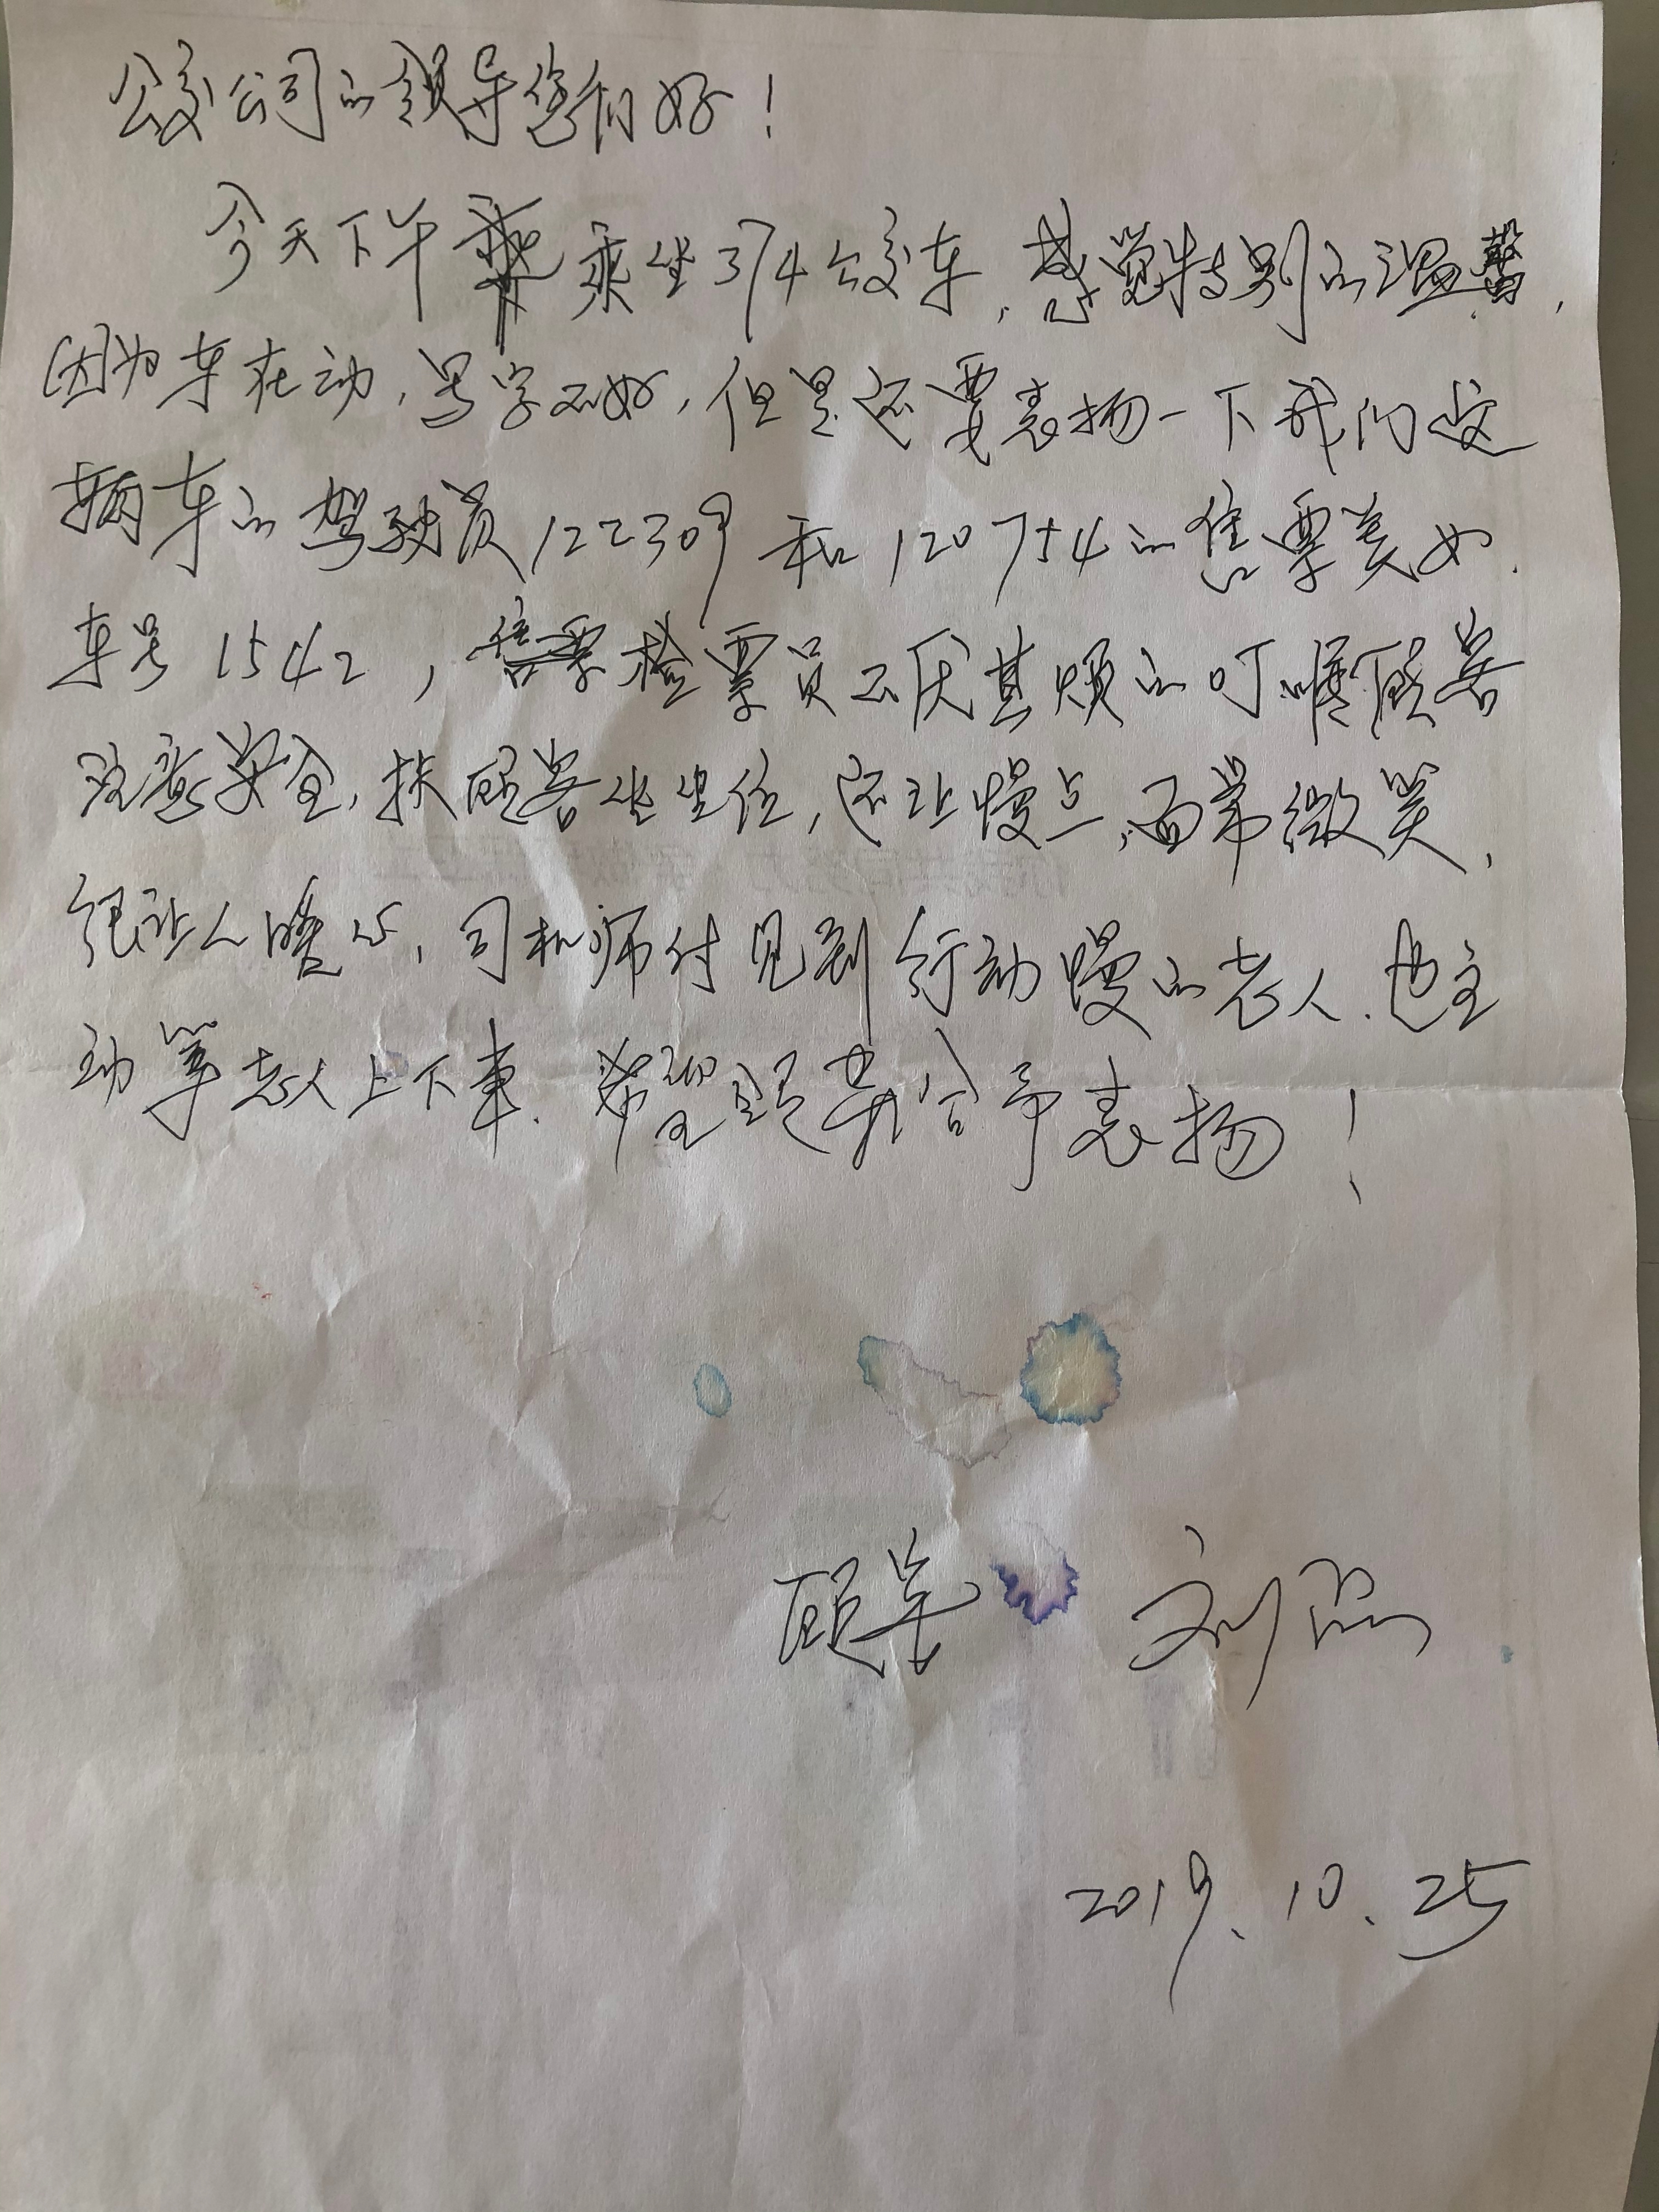 公交公司的领导您们好！
今天下午乘坐374公交车，感觉特别的温馨，
因为车在动，写字不好，但是还要表扬一下我们这
辆车的驾驶员122309和120754的售票美女.
车号1542，检票员不厌其烦的叮嘱顾客
注意安全，扶顾客坐坐位，还让慢点，面带微笑，
很让人暖心，司机师付见到行动慢的老人.也主
动等老人上下车.希望给予表扬！
顾客 刘
2019.10.25